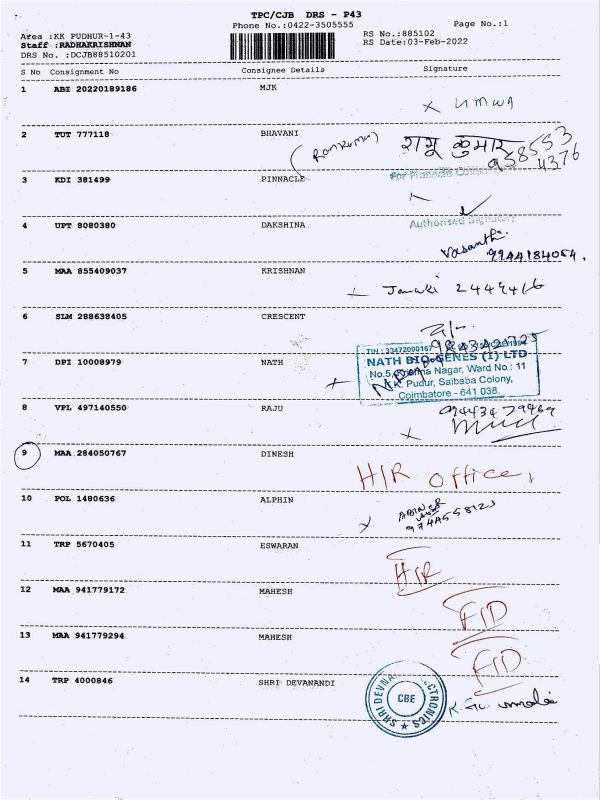 TPC/CJB DRS - P43
Phone No.:0422-3505555
Page No.:1
Area :KK PUDHUR-1-43
RS No.:885102
Staff :RADHAKRISHNAN
RS Date:03-Feb-2022
DRS No. :DCJB88510201
S No Consignment No Consignee Details Signature
1 ABI 20220189186 MJK
2 TUT 777118 BHAVANI
(Ramkumar) रामू कुमार
3 KDI 381499 PINNACLE
Authorised Signatory
4 UPT 8080380 DAKSHINA
Vasanthi
9944184054.
5 MAA 855409037 KRISHNAN
Janaki
6 SLM 288638405 CRESCENT
TIN : 33472000167
NATH BIO-GENES (I) LTD
7 DPI 10008979 NATH
No.5, Krishna Nagar, Ward No : 11
K.K. Pudur, Saibaba Colony,
Coimbatore - 641 038.
8 VPL 497140550 RAJU
9443479469
9 MAA 284050767 DINESH
H/R office,
10 POL 1480636 ALPHIN
11 TRP 5670405 ESWARAN
H/R
12 MAA 941779172 MAHESH
FID
13 MAA 941779294 MAHESH
FID
14 TRP 4000846 SHRI DEVANANDI
CBE